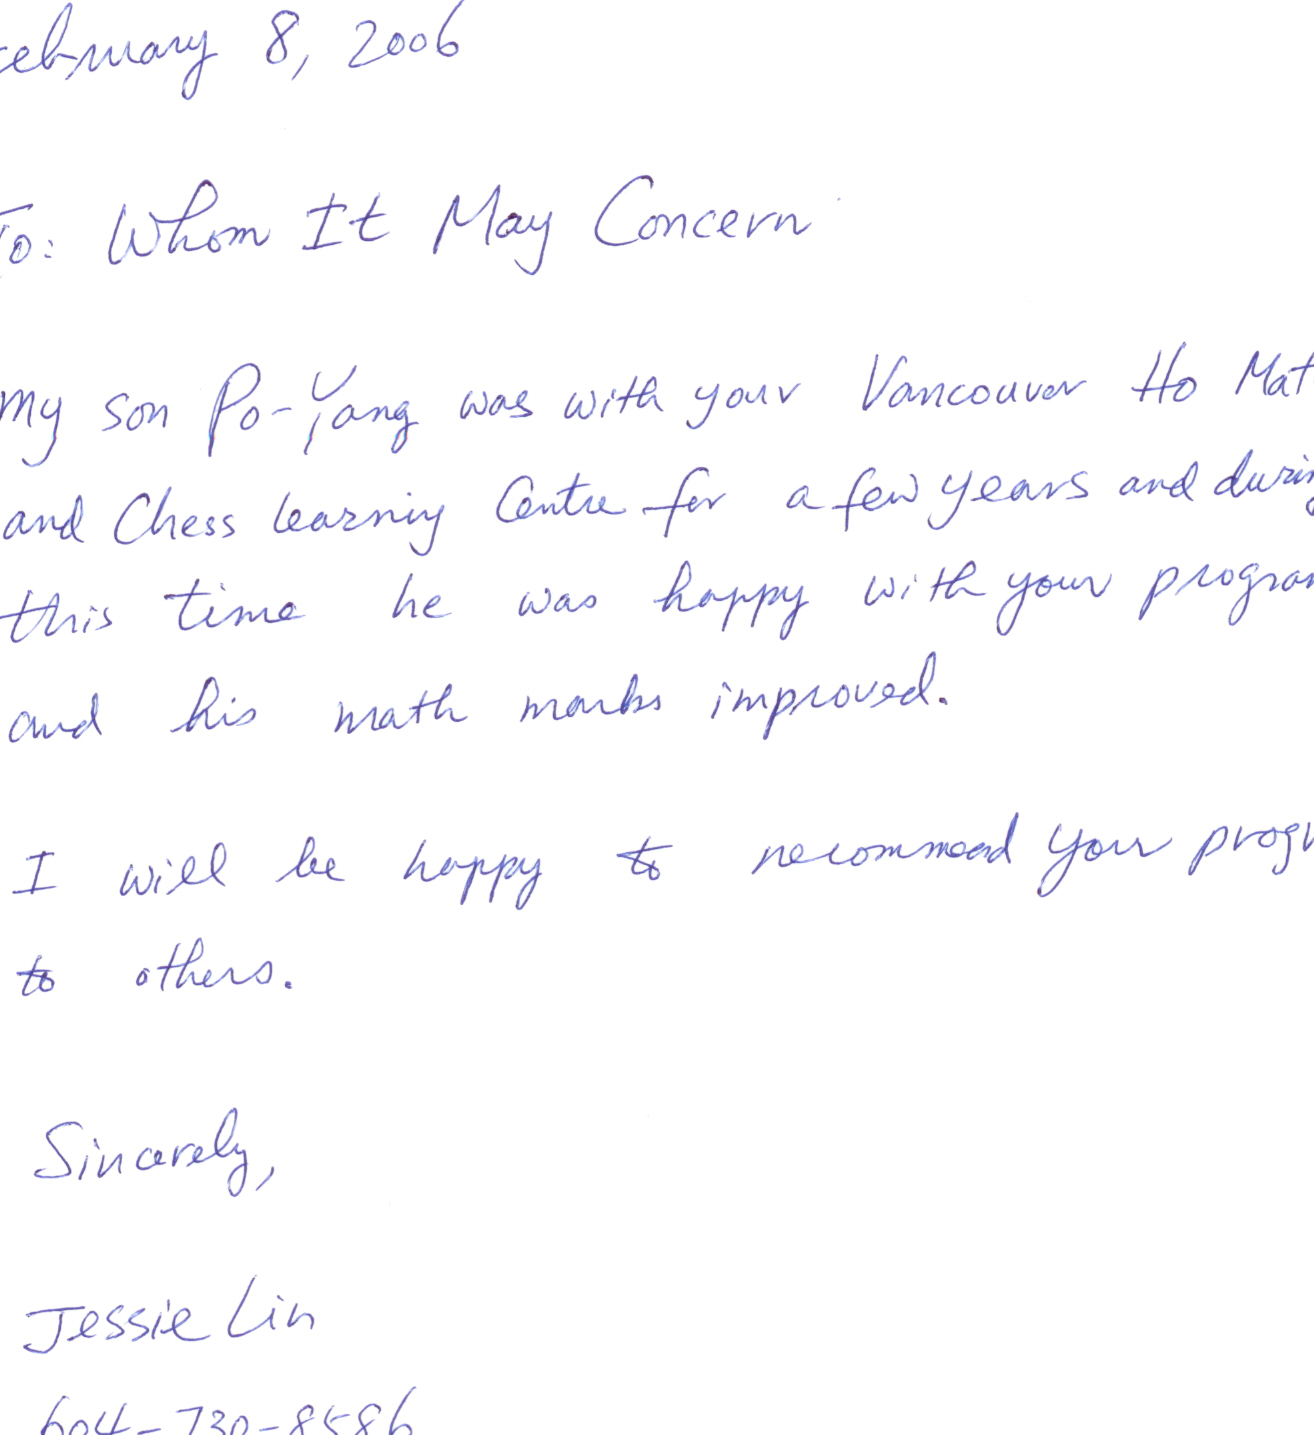 February 8, 2006
To: Whom It May Concern
My son Po-Yang was with your Vancouver Ho Mat
and Chess learning Centre for a few years and durin
this time he was happy with your program
and his math marks improved.
I will be happy to recommend your progr
to others.
Sincerely,
Jessie Lin
604-730-8586